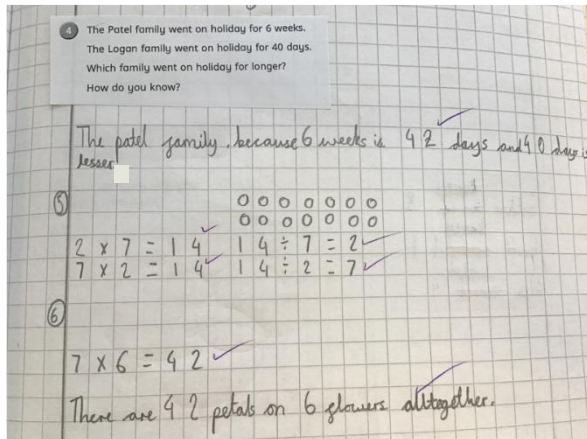 4 The Patel family went on holiday for 6 weeks.
The Logan family went on holiday for 40 days.
Which family went on holiday for longer?
How do you know?
The patel family, because 6 weeks is 42 days and 40 days is
lesser
5 0 0 0 0 0 0 0
0 0 0 0 0 0 0
2 x 7 = 14 14 ÷ 7 = 2
7 x 2 = 14 14 ÷ 2 = 7
6
7 x 6 = 42
There are 42 petals on 6 flowers alltogether.